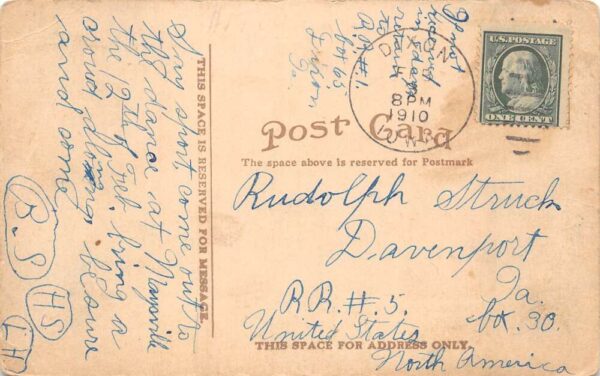 If not
received
in 5 days
return
to
R.R.#.1.
box 65
Dixon
Ia.
DIXON
4
8 PM
1910
IOWA
U.S. POSTAGE
ONE CENT
Post Card
The space above is reserved for Postmark
THIS SPACE IS RESERVED FOR MESSAGE.
Say sport come out to
the dance at Maysville
the 12th of Feb. bring a
crowd along be sure
and come
B.S
H S
L H
Rudolph Struck
Davenport
Ia.
R R. #. 5.
box. 30.
United States
THIS SPACE FOR ADDRESS ONLY.
North America